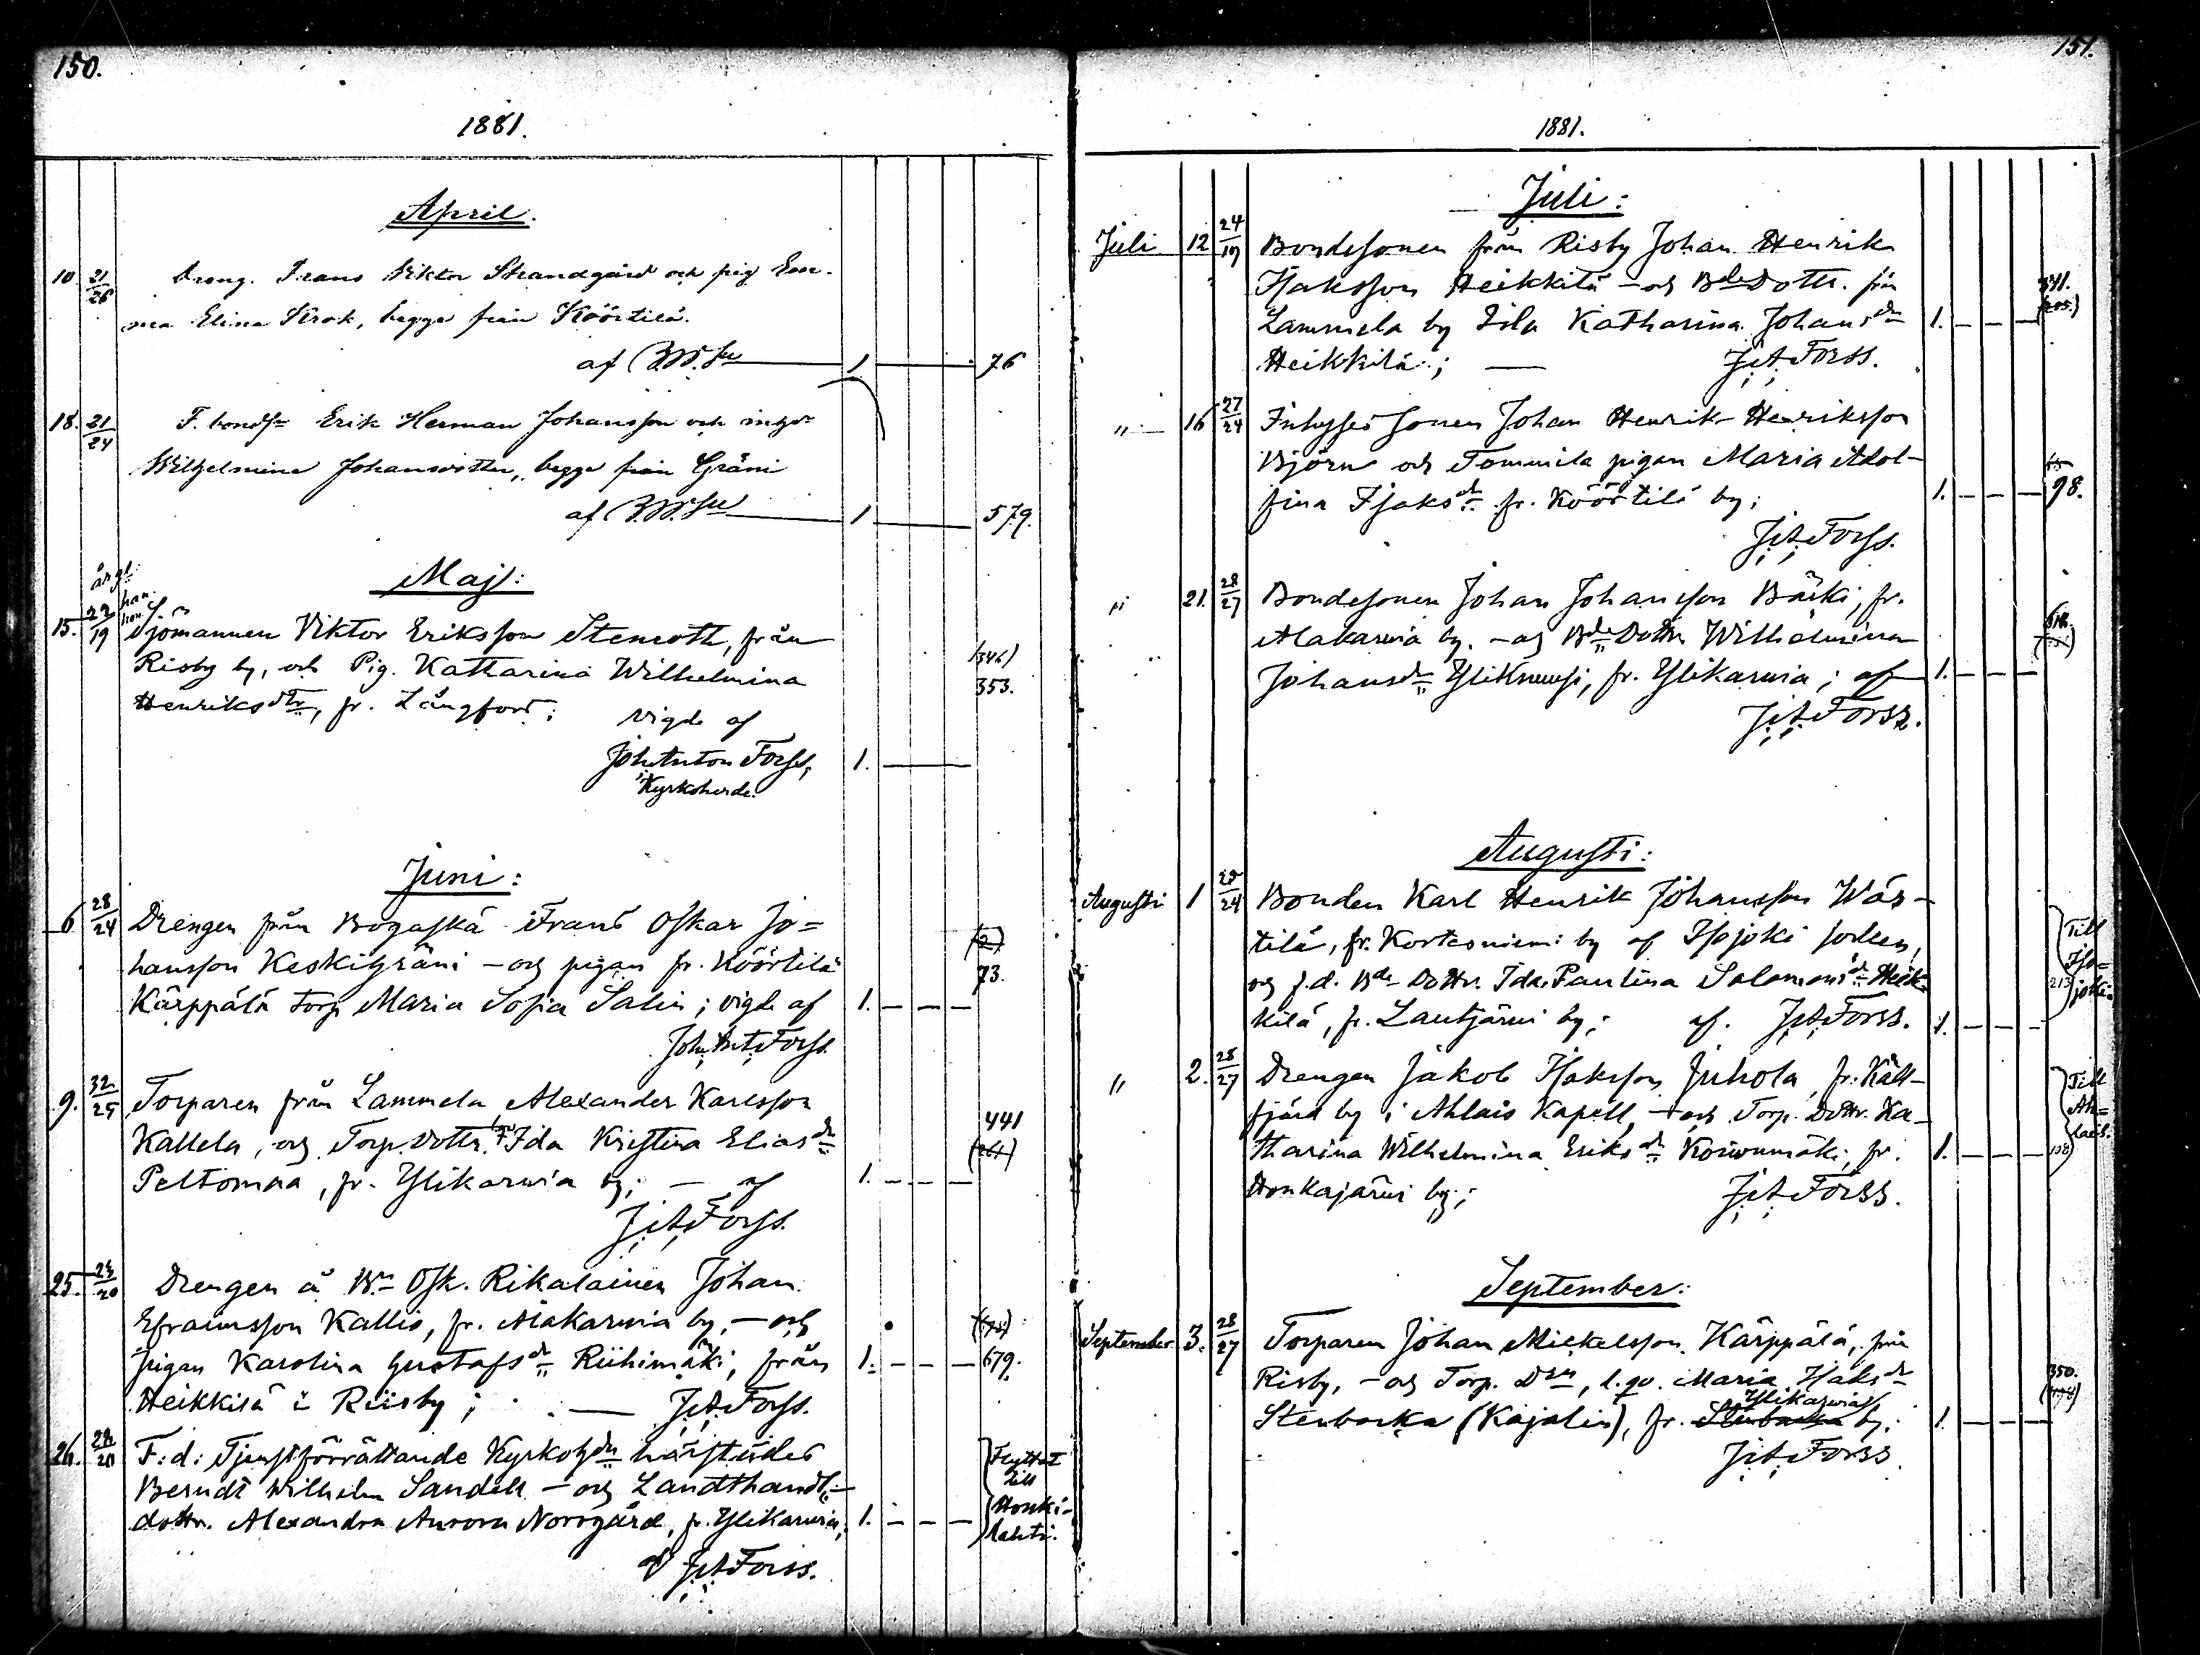 150.
1881.
April.
10 21/26 dreng. Frans Viktor Strandgård och pig. Em-
ma Elina Krok, begge från Köörtilä.
af 1 76
18. 21/24 F. bonds Erik Herman Johansson och
Wilhelmina Johansdotter, begge från Gräni
af 1 579.
Maj:
årgl:
han:
hon:
15. 22/19 Sjömannen Viktor Eriksson Stenroth, från
Risby by, och Pig. Katharina Wilhelmina (346)
Henriksdtr, fr. Långfors; 353.
vigde af
Joh. Anton Forss, 1.
Kyrkoherde.
Juni:
6 28/24 Drengen från Bogaskä Frans Oskar Jo=
hansson Keskigräni – och pigan fr. Köörtilä (2)
Kärppälä torp Maria Sofia Salin; vigde af 1. 73.
Joh. Ant. Forss.
9. 32/25 Torparen från Lammela Alexander Karlsson
Kallela, och Torp. Dottr. Ida Kristina Elias dr 441
Peltomaa, fr. Ylikarvia by; – af 1. (261)
J. A. Forss.
25. 23/20 Drengen å Bn Osk. Rikalainen Johan
Efraimsson Kallio, fr. Alakarvia by, – och (78)
pigan Karolina Gustafs dr Riihimäki, från 1. 679.
Heikkilä i Riisby; J. A. Forss.
26. F: d: Tjenstförrättande Kyrkohdn härstädes
Berndt Wilhelm Sandell – och Landthandl.-
dottr. Alexandra Aurora Norrgård, fr. Ylikarvia; 1.
Flyttat
till
Honki-
lahti.
af J. A. Forss.
151.
1881.
Juli:
Juli 12 24/19 Bondesonen från Risby Johan Henrik
Isaksson Heikkilä – och Bde Dottr. från 341.
Lammela by Eila Katharina Johans dr 1. (205.)
Heikkilä; J. A. Forss.
" 16 27/24 Inhyses sonen Johan Henrik Henriksson
Björn och Tommila pigan Maria Adol-
fina Isaks dr fr. Köörtilä by; 1. 98.
J. A. Forss.
" 21. 28/27 Bondesonen Johan Johansson Bäcki, fr.
Alakarvia by. – och Bde Dottr Wilhelmina
Johans dr Yliknuusi, fr. Ylikarvia; af 1.
J. A. Forss.
Augusti:
Augusti 1 Bonden Karl Henrik Johansson Wäs-
tilä, fr. Kortesniemi by af Isojoki socken,
och f.d. Bde Dottr. Ida Paulina Salomons dr Heik-
kilä, fr. Lautjärvi by; af. J. A. Forss. 1.
Till
Iso-
joki.
213
" 2. 28/27 Drengen Jakob Isaksson Juhola, fr. Käll-
fjärd by i Ahlais Kapell, – och Torp. Dottr. Ka-
tharina Wilhelmina Eriks dr Koivumäki, fr. 1.
Honkajärvi by; J. A. Forss.
Till
Ah-
lais.
September:
September 3. 28/27 Torparen Johan Mickelsson Kärppälä, från
Risby, – och Torp. Dtr, l. qv. Maria Isaks dr 350.
Ylikarvia
Stenbacka (Kajalin), fr. Stenbacka by; 1.
J. A. Forss.